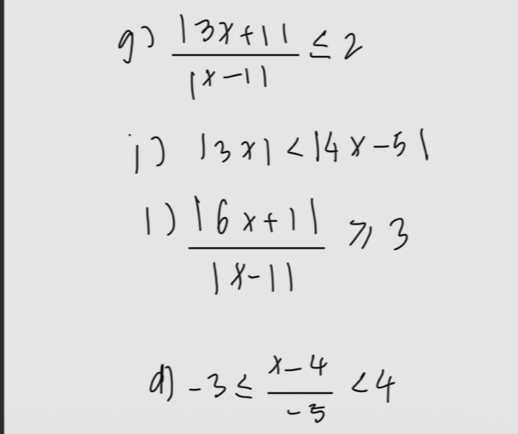 g) |3x+1| / |x-1| ≤ 2
j) |3x| < |4x-5|
l) |6x+1| / |x-1| ≥ 3
d) -3 ≤ x-4 / -5 < 4